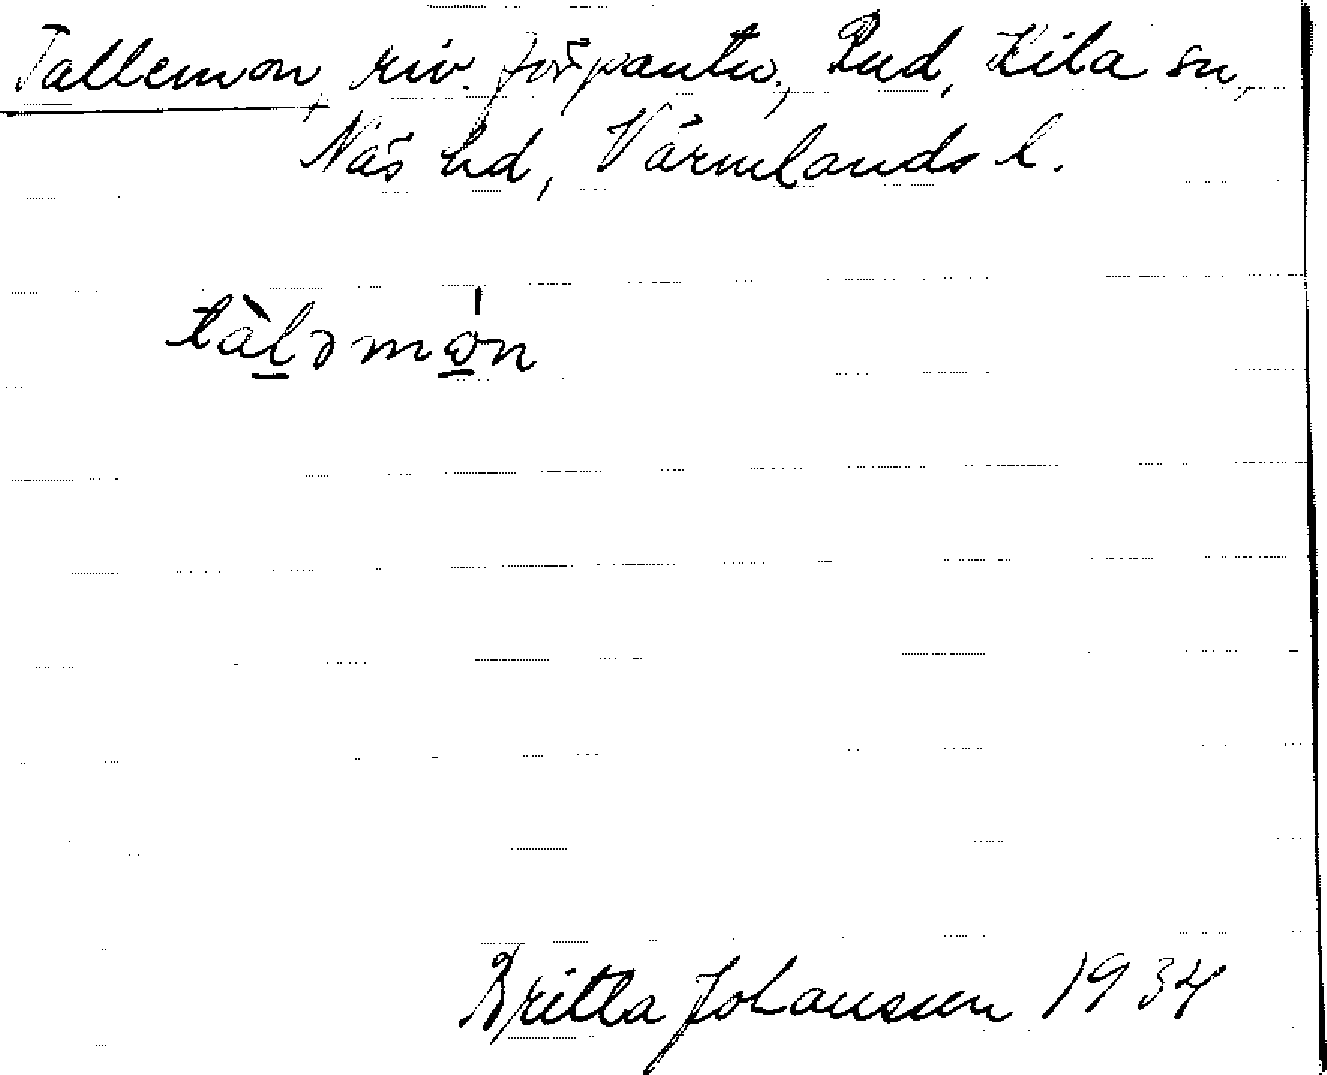 Tallemon, riv. förpantn., Rud, Kila sn,
Näs hd, Värmlands l.
tàləmón
Britta Johansson 1934